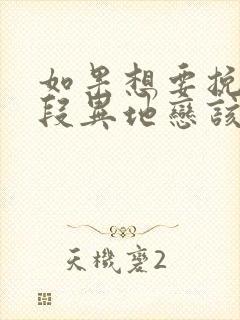 如果想要挽
段異地戀該
天機鑒2